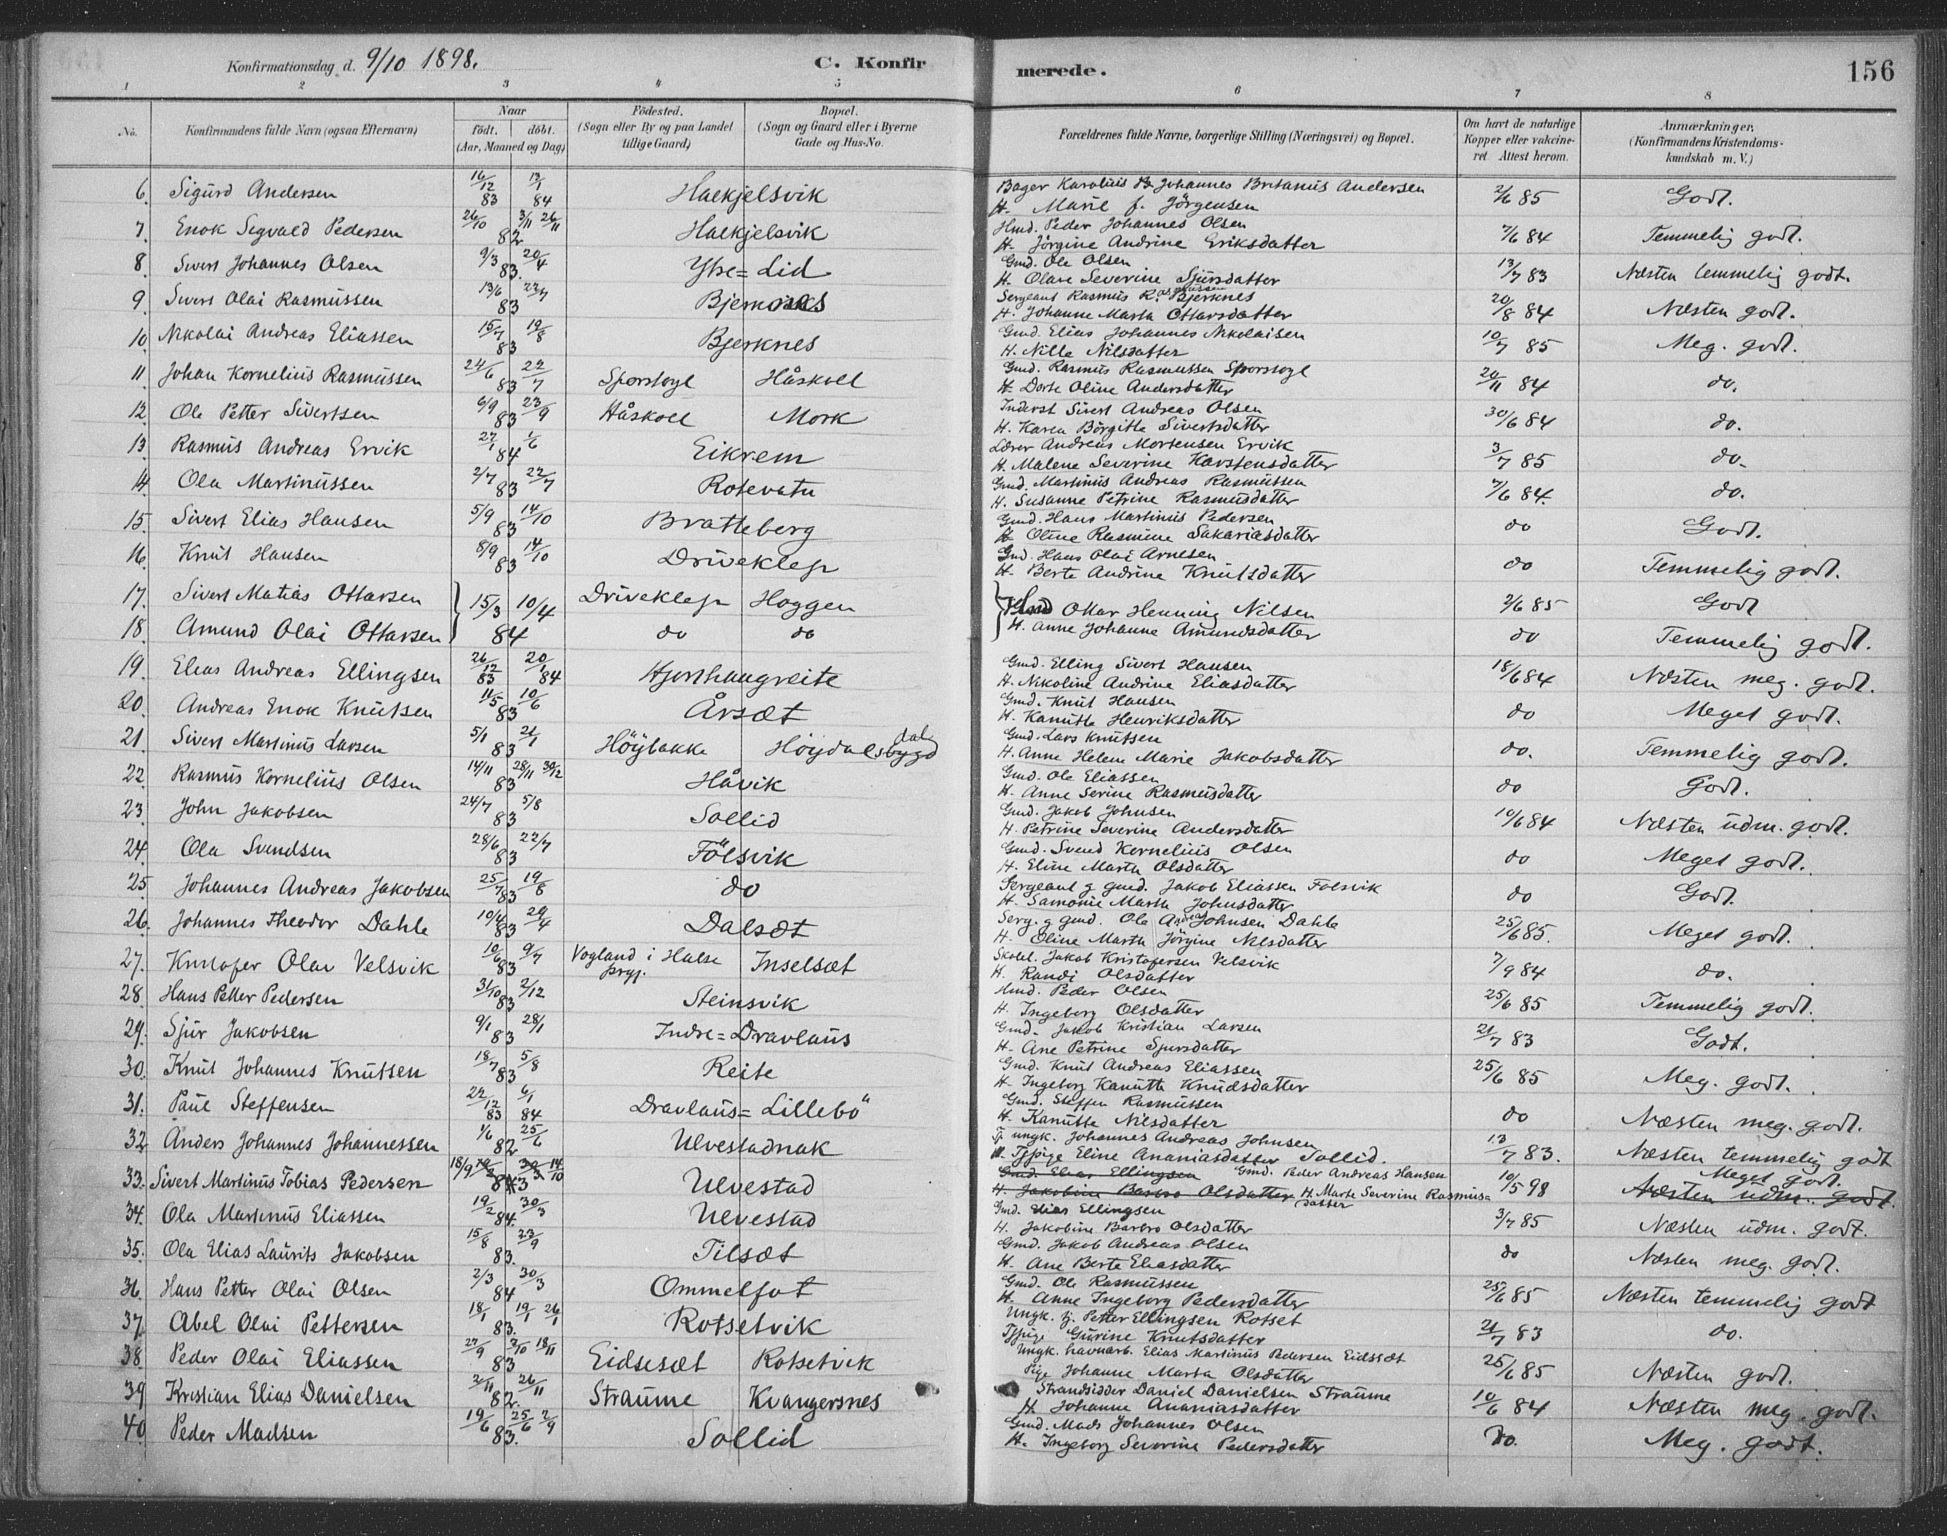 Konfirmationsdag d. 9/10 1898. C. Konfirmerede. 156
1 2 3 4 5 6 7 8
No. Konfirmandens fulde Navn (ogsaa Efternavn) Naar födt. döbt. (Aar, Maaned og Dag) Födested. (Sogn eller By og paa Landet tillige Gaard) Bopæl. (Sogn og Gaard eller i Byerne Gade og Hus-No. Forældrenes fulde Navne, borgerlige Stilling (Næringsvei) og Bopæl. Om havt de naturlige Kopper eller vakcineret Attest herom. Anmærkninger. (Konfirmandens Kristendomskundskab m. V.)
6 Sigurd Andersen 16/12 83 13/1 84 Haekjelsvik Bager Karolius Johannes Britanius Andersen 2/6 85 Godt.
H. Marie f. Jörgensen
7. Enok Segvald Pedersen 26/10 3/11 26/11 82 Haekjelsvik Hmd. Peder Johannes Olsen 7/6 84 Temmelig godt.
H. Jörgine Andrine Eriksdatter
8. Sivert Johannes Olsen 9/3 20/4 83. Ytre=Lid Gmd. Ole Olsen 13/7 83 Næsten temmelig godt.
H. Olave Severine Sjursdatter
9. Sivert Olai Rasmussen 13/6 22/7 83 Sergeant Rasmus R. Bjerknes 20/8 84 Næsten godt.
H. Johanne Marta Ottarsdatter
10. Nikolai Andreas Eliassen 15/7 19/8 83 Bjerknes Gmd. Elias Johannes Nikolaisen 10/7 85 Meg. godt.
H. Nille Nilsdatter
11. Johan Kornelius Rasmussen 24/6 22/7 83 Sporstöyl Håskoll Gmd. Rasmus Rasmussen Sporstöyl 20/11 84 do.
H. Dorte Oline Andersdatter
12. Ole Petter Sivertsen 6/9 23/9 83 Håskoll Mork Inderst Sivert Andreas Olsen 30/6 84 do.
H. Karen Börgitte Sivertsdatter
13. Rasmus Andreas Ervik 27/1 1/6 84 Eikrem Lærer Andreas Mortensen Ervik 3/7 85 do.
H. Malene Severine Karstensdatter
14. Ola Martinussen 2/7 22/7 83 Rotevatn Gmd. Martinus Andreas Rasmussen 7/6 84. do.
H. Susanne Petrine Rasmusdatter
15. Sivert Elias Hansen 5/9 14/10 83 Bratteberg Gmd. Hans Martinus Pedersen do Godt.
H. Oline Rasmine Sakariasdatter
16. Knut Hansen 8/9 14/10 83 Driveklep Gmd. Hans Olai Arnesen do Temmelig godt.
H. Berte Andrine Knutsdatter
17. Sivert Matias Ottarsen 15/3 10/4 84 Driveklep Hoggen Ottar Henning Nilsen 2/6 85 Godt
18. Amund Olai Ottarsen do do H. Anne Johanne Amundsdatter do Temmelig godt.
19. Elias Andreas Ellingsen 26/12 83 20/1 84 Hjorthaugreite Gmd. Elling Sivert Hansen 18/6 84 Næsten meg. godt.
H. Nikoline Andrine Eliasdatter
20. Andreas Enok Knutsen 11/5 10/6 83 Årsæt Gmd. Knut Hansen do Meget godt.
H. Kanutte Henriksdatter
21. Sivert Martinus Larsen 5/1 21/1 83 Höybakke Gmd. Lars Knutsen do. Temmelig godt.
H. Anne Helene Marie Jakobsdatter
22. Rasmus Kornelius Olsen 14/11 28/11 30/12 83 Håvik Gmd. Ole Eliassen do Godt.
H. Anne Serine Rasmusdatter
23. John Jakobsen 24/7 5/8 83 Sollid Gmd. Jakob Johnsen 10/6 84 Næsten udm. godt.
H. Petrine Severine Andersdatter
24. Ola Svendsen 28/6 22/7 83 Fölsvik Gmd. Svend Kornelius Olsen do Meget godt.
H. Eline Marta Olsdatter
25 Johannes Andreas Jakobsen 25/7 19/8 83 do Sergeant g gmd. Jakob Eliassen Folsvik do Godt.
H. Samonie Marta Johnsdatter
26. Johannes Theodor Dahle 10/4 29/4 83 Dalsæt Serg. g gmd. Ole Andreas Johnsen Dahle 25/6 85. Meget godt.
H. Oline Marta Jörgine Nilsdatter
27. Kristofer Olav Velsvik 10/6 9/7 83 Vogland i Halse prgj. Inselsæt Skolel. Jakob Kristofersen Velsvik 7/9 84 do.
H. Randi Olsdatter
28. Hans Petter Pedersen 31/10 2/12 83 Steinsvik Hmd. Peder Olsen 25/6 85 Temmelig godt.
H. Ingeborg Olsdatter
29. Sjur Jakobsen 9/1 28/1 83 Indre=Dravlaus Gmd. Jakob Kristian Larsen 21/7 83 Godt.
H. Ane Petrine Sjursdatter
30. Knut Johannes Knutsen 18/7 5/8 83 Reite Gmd. Knut Andreas Eliassen 25/6 85 Meg. godt.
H. Ingeborg Kanutta Knudsdatter
31. Paul Steffensen 22/12 83 6/1 84 Dravlaus=Lillebö Gmd. Steffen Rasmussen do Næsten meg. godt.
H. Kanutte Nilsdatter
32 Anders Johannes Johannessen 1/6 25/6 82 Ulvestadnak F. ungk. Johannes Andreas Johnsen 13/7 83. Næsten temmelig godt
M. Tjpige Eline Ananiasdatter Sollid.
33. Sivert Martinus Tobias Pedersen 18/9 14/10 83 Ulvestad Gmd. Elias Ellingsen Gmd. Peder Andreas Hansen 10/5 98 Meget godt.
H. Jakobine Barbro Olsdatter H. Marte Severine Rasmusdatter Næsten udm. godt.
34. Ola Martinus Eliassen 19/2 30/3 84. Ulvestad Gmd. Elias Ellingsen 3/7 85 Næsten udm. godt.
H. Jakobine Barbro Olsdatter
35. Ola Elias Laurits Jakobsen 15/8 23/9 83. Tilsæt Gmd. Jakob Andreas Olsen do Næsten meg. godt.
H. Ane Berte Eliasdatter
36. Hans Petter Olai Olsen 2/3 30/3 84 Ommelfot Gmd. Ole Rasmussen 25/6 85 Næsten temmelig godt
H. Anne Ingeborg Pedersdatter
37. Abel Olai Pettersen 18/1 19/1 26/1 83. Rotsetvik Ungk. tj. Petter Ellingsen Rotset 21/7 83 do.
Tjpige Gurine Knutsdatter
38. Peder Olai Eliassen 27/9 2/10 18/11 83 Eidsesæt Rotsetvik Ungk. havnarb. Elias Martinus Pedersen Eidssæt 25/6 85 Næsten godt.
Pige Johanne Marta Olsdatter
39 Kristian Elias Danielsen 2/11 26/11 82 Straume Kvangersnes Strandsidder Daniel Danielsen Straume 10/6 84 Næsten meg. godt.
H. Johanne Ananiasdatter
40 Peder Madsen 19/6 25/6 2/9 83. Sollid Gmd. Mads Johannes Olsen Do. Meg. godt.
H. Ingeborg Severine Pedersdatter